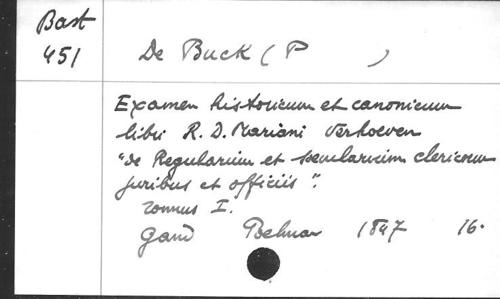 Bast
451
De Buck (P )
Examen historicum et canonicum
libri R. D. Mariani Verhoeven
"de Regularium et saecularium clericorum
juribus et officiis".
Tomus I.
Gand Belman 1847 16.